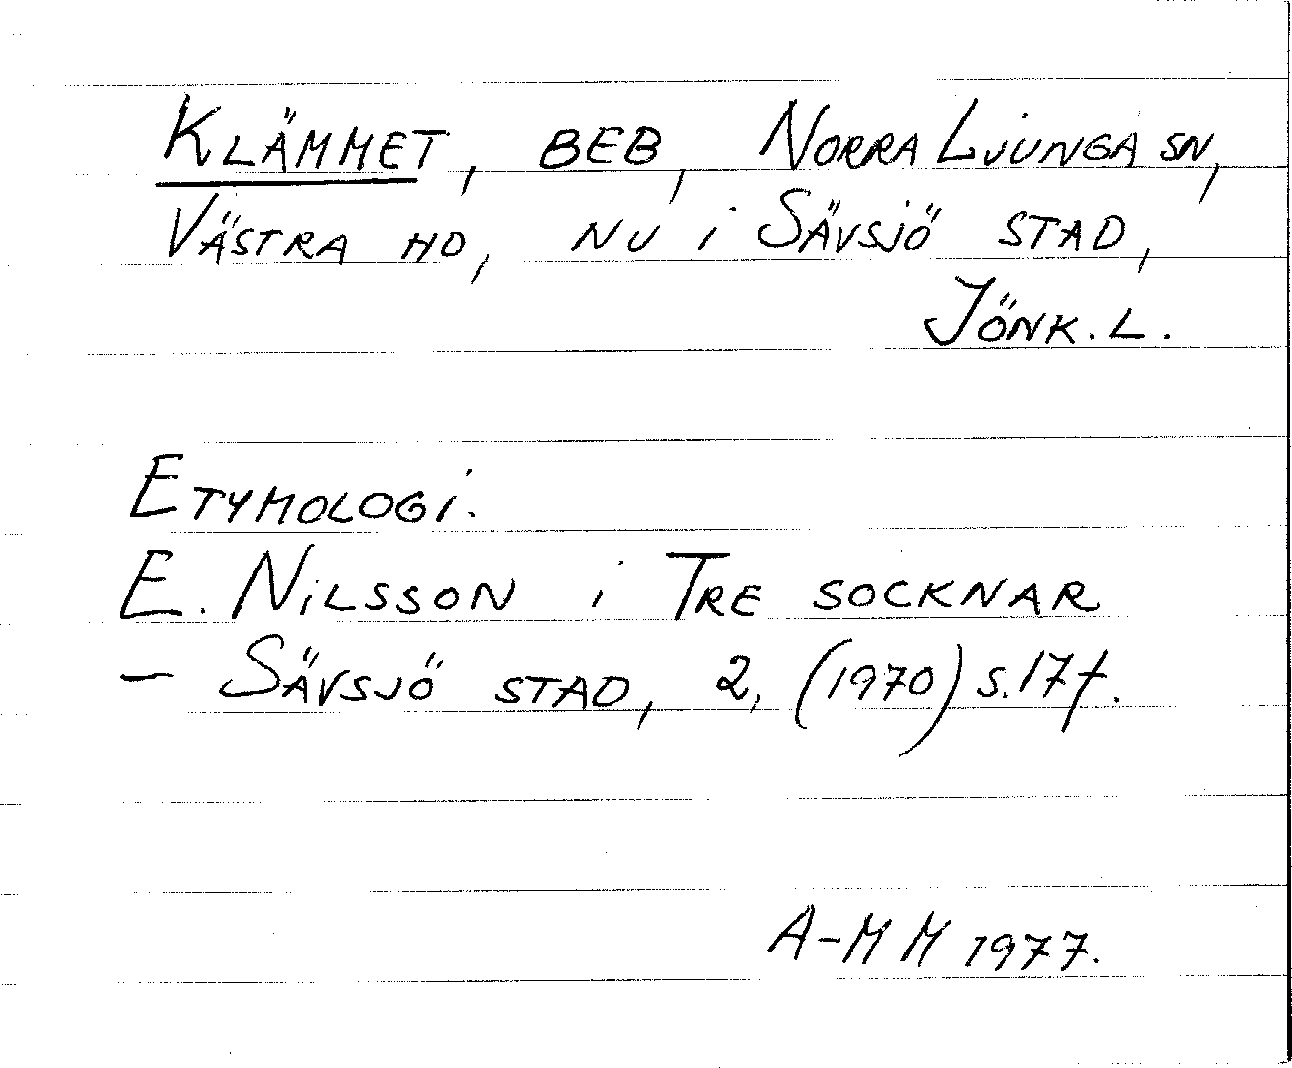 KLÄMMET, BEB, NORRA LJUNGA SN,
VÄSTRA HD, NU i SÄVSJÖ STAD,
JÖNK. L.
ETYMOLOGi.
E. NiLSSON i TRE SOCKNAR
– SÄVSJÖ STAD, 2, (1970) s. 17 f.
A-M M 1977.